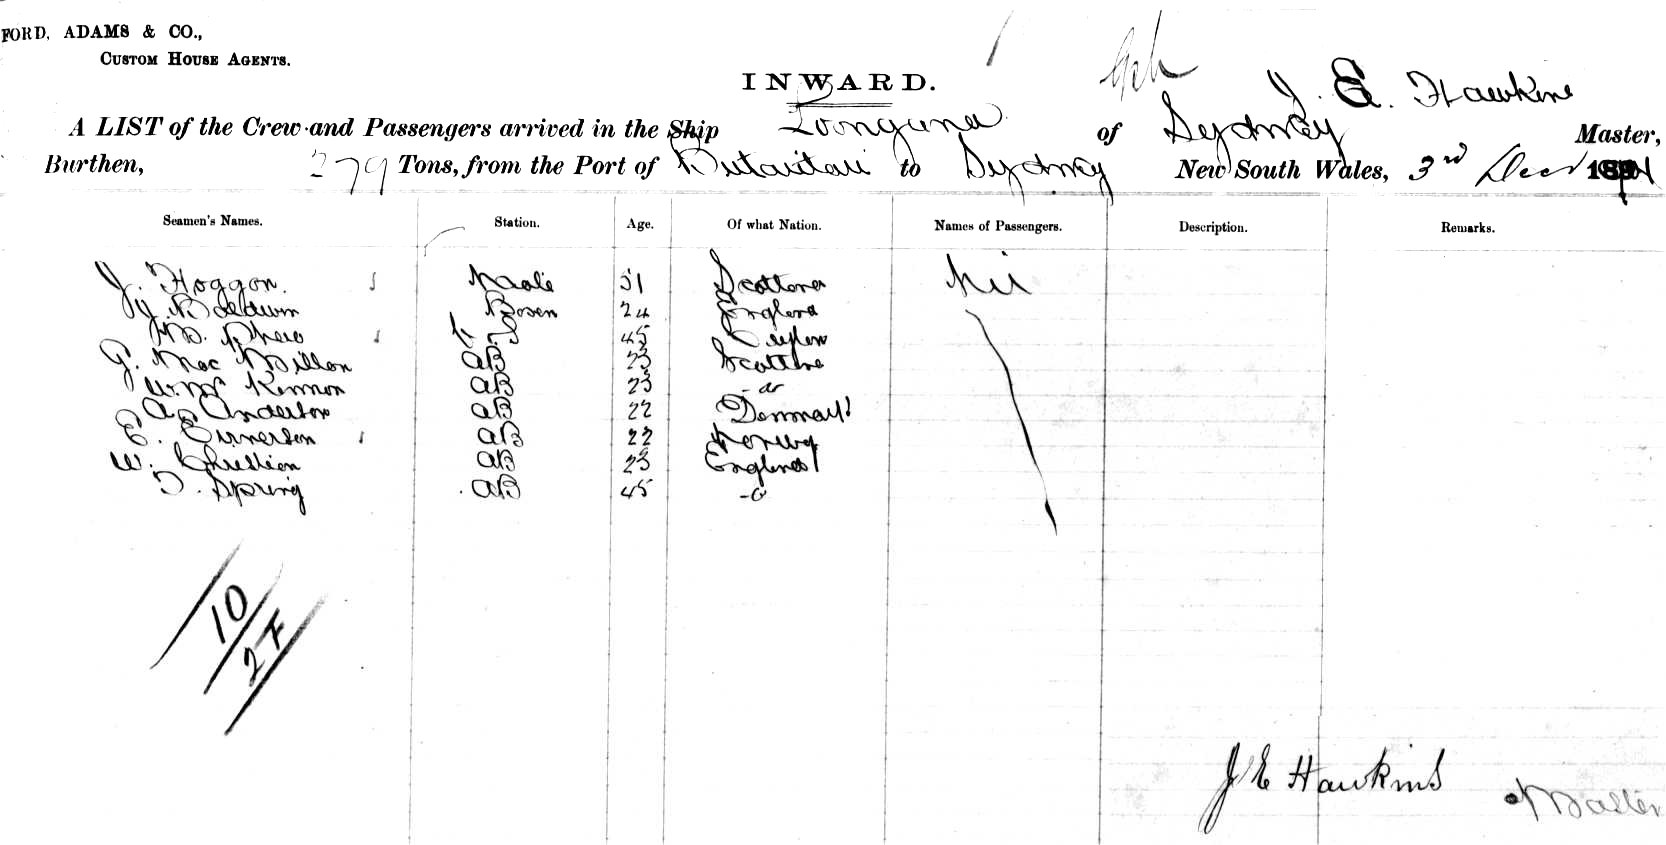 FORD, ADAMS & CO.,
CUSTOM HOUSE AGENTS.
INWARD.
J. E. Hawkins
A LIST of the Crew and Passengers arrived in the Ship Loongana of Sydney Master,
Burthen, 279 Tons, from the Port of Butaritari to Sydney New South Wales, 3rd Dec 1894
Seamen's Names. Station. Age. Of what Nation. Names of Passengers. Description. Remarks.
J. Hoggon. Mate 51 Scotland Nil
J. Baldwin Bosen 24 England
45 Ceylon
G. Mac Millan AB 23 Scotland
W. Mc Kinnon AB 23 - do
A. Anderson AB 22 Denmark
E. AB 22 Norway
W. Christien AB 23 England
T. Spring AB 45 - do
10
27
J E Hawkins
Master